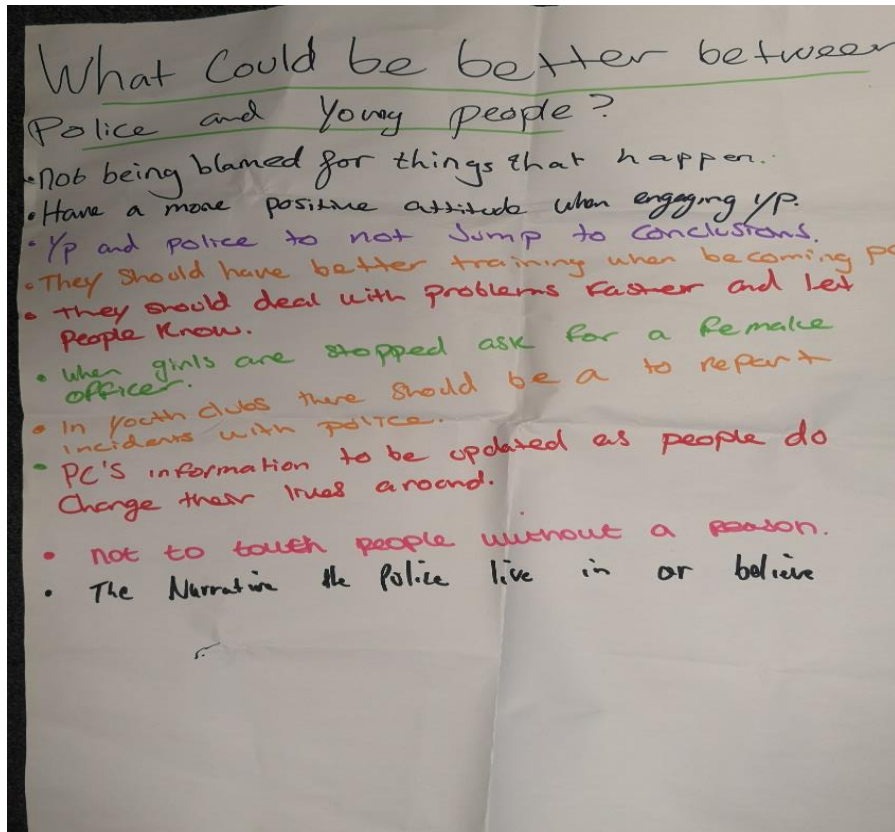 What Could be better between
Police and Young people?
• Not being blamed for things that happen.
• Have a more positive attitude when engaging YP.
• YP and police to not Jump to conclusions.
• They should have better training when becoming po
• They should deal with problems faster and let
people know.
• When girls are stopped ask for a female
officer.
• In youth clubs there should be a to report
incidents with police.
• PC'S information to be updated as people do
Change their lives around.
• not to touch people without a reason.
• The Narrative the Police live in or believe